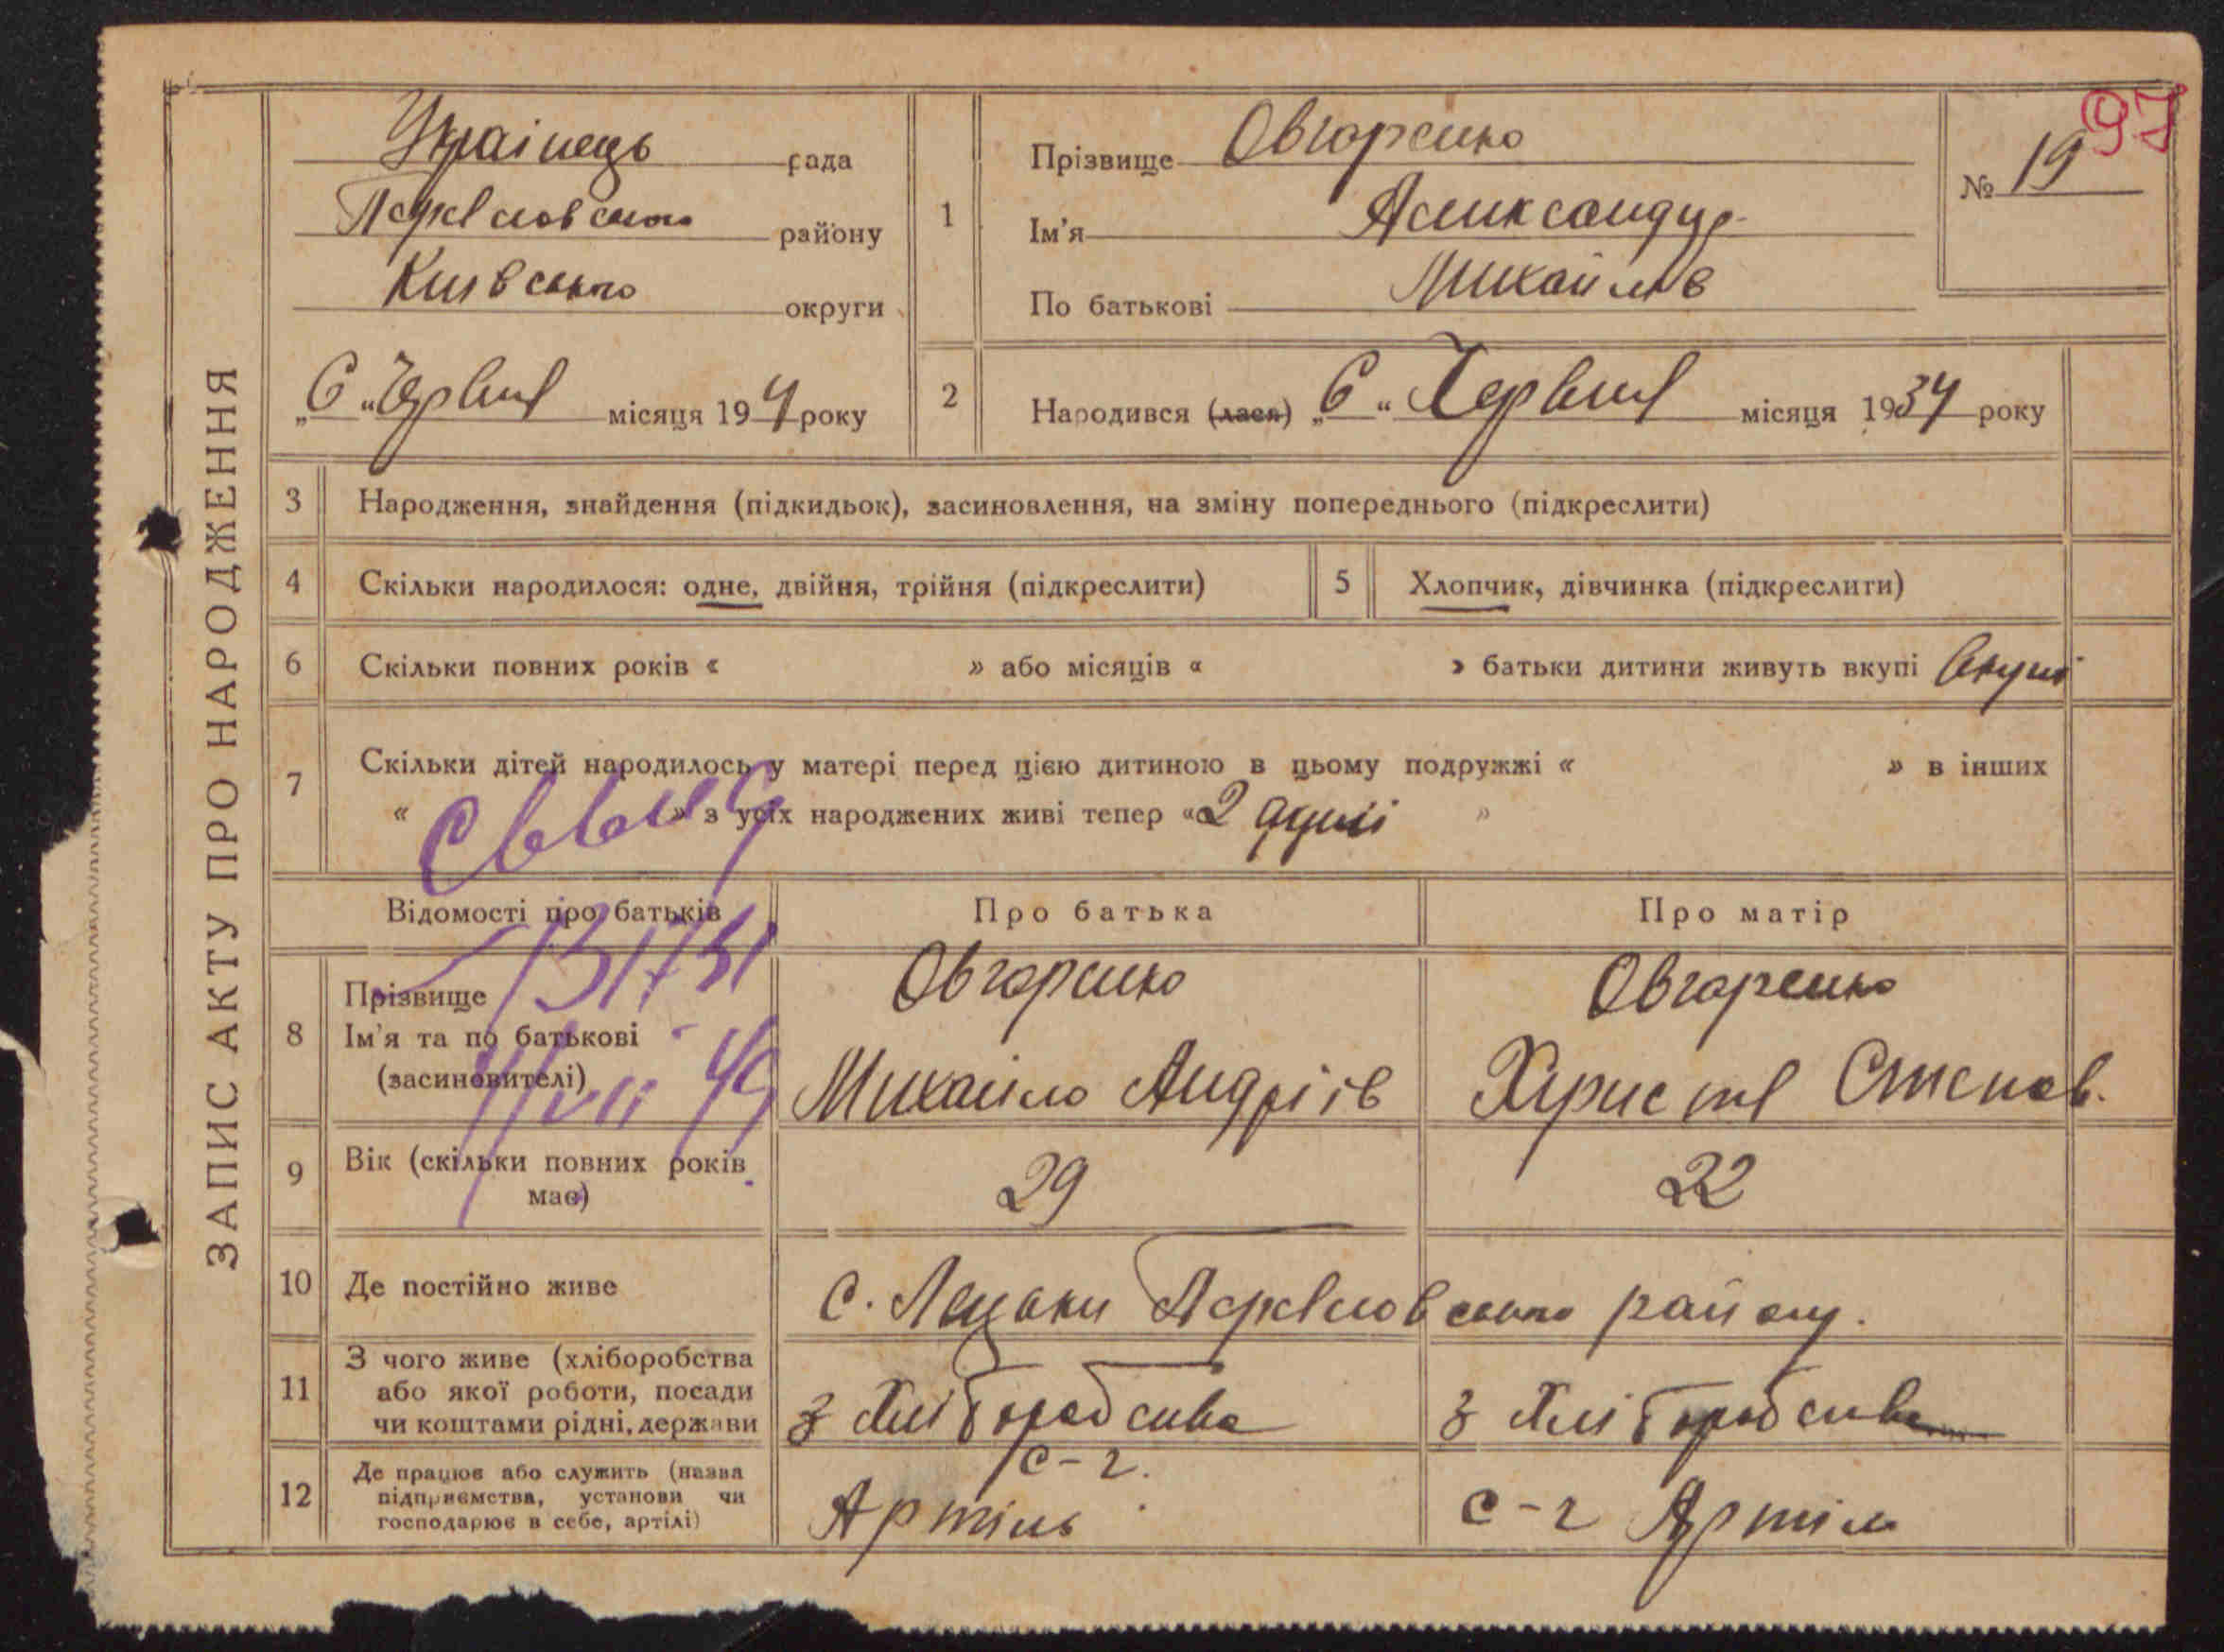 ЗАПИС АКТУ ПРО НАРОДЖЕННЯ
Українець рада
району
Київсько округи
„6“ Червня місяця 194 року
1
Прізвище Овчаренко
Ім'я Аликсандр
По батькові Михайлов
№ 19
97
2
Народився (лася) „6“ Червня місяця 1934 року
3 Народження, знайдення (підкидьок), засиновлення, на зміну попереднього (підкреслити)
4 Скільки народилося: одне, двійня, трійня (підкреслити)
5 Хлопчик, дівчинка (підкреслити)
6 Скільки повних років « » або місяців « » батьки дитини живуть вкупі вкупі
7 Скільки дітей народилось у матері перед цією дитиною в цьому подружжі « » в інших
« » з усіх народжених живі тепер «2 душі »
Відомості про батьків
Про батька
Про матір
8 Прізвище
Ім'я та по батькові
(засиновителі)
Овчаренко
Михайло Андріїв
Овчаренко
Христя Степов.
9 Вік (скільки повних років
має)
29
22
10 Де постійно живе
с. району.
11 З чого живе (хліборобства
або якої роботи, посади
чи коштами рідні, держави
з Хліборобсива
з Хліборобсива
12 Де працює або служить (назва
підприємства, установи чи
господарює в себе, артілі)
с-г.
Артіль
с-г Артіль